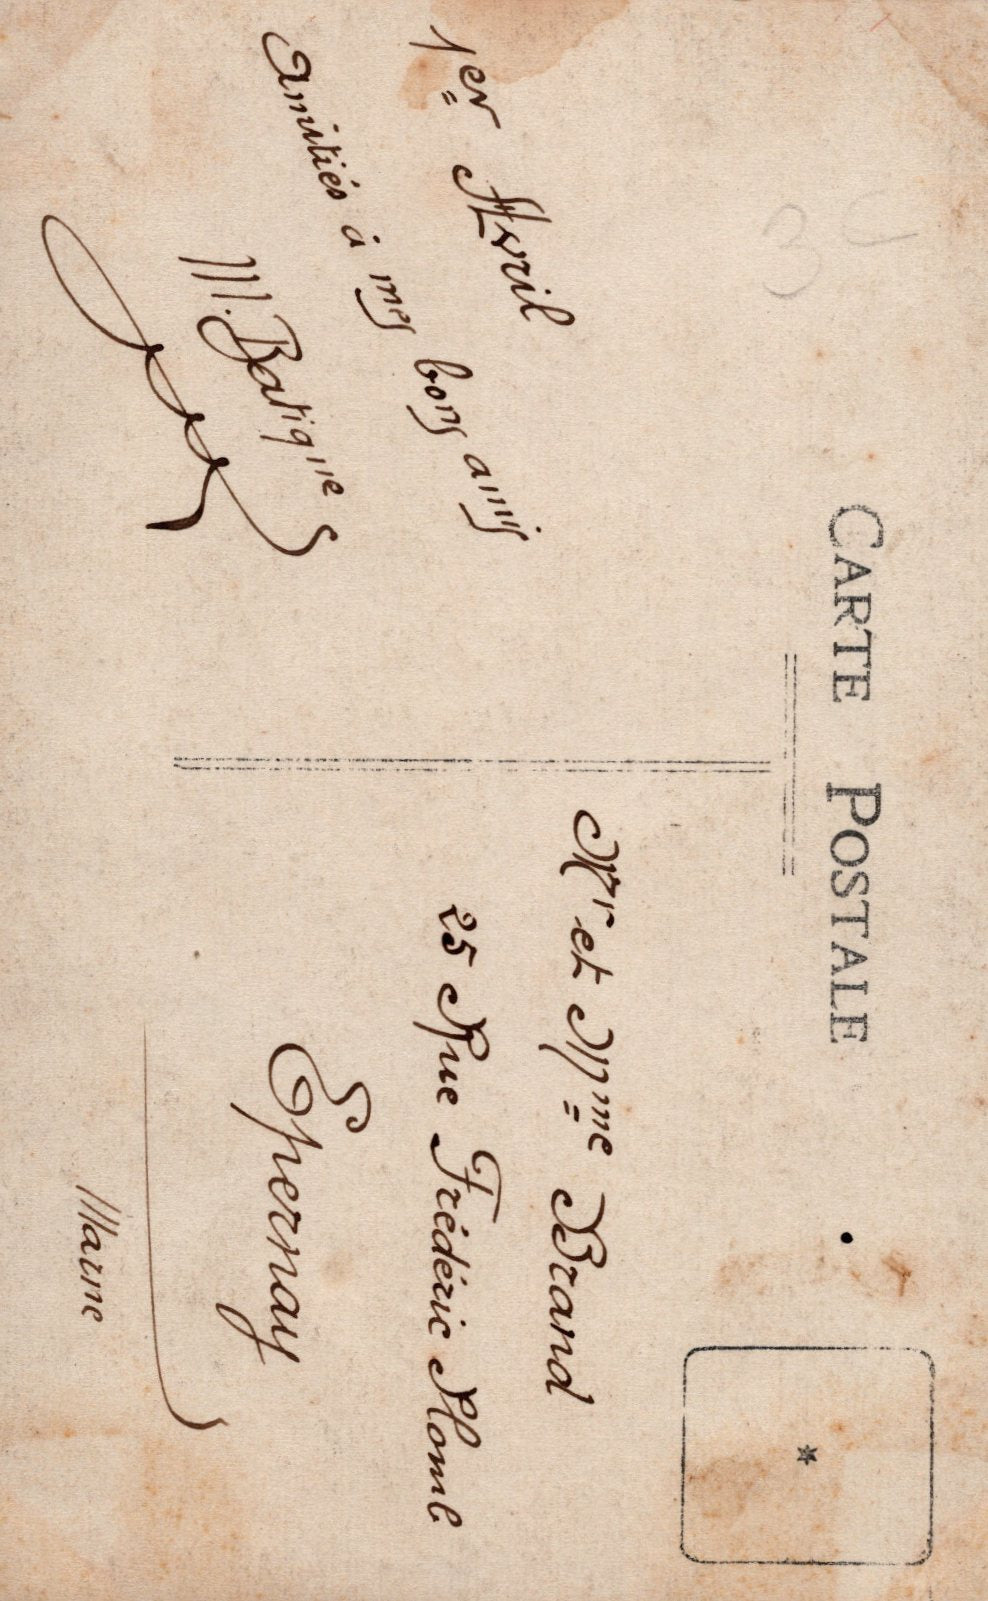 CARTE POSTALE
1er Avril
Amitiés à mes bons amis
M. Batique
Mr et Mme Brand
25 Rue Frédéric Plomb
Epernay
Marne